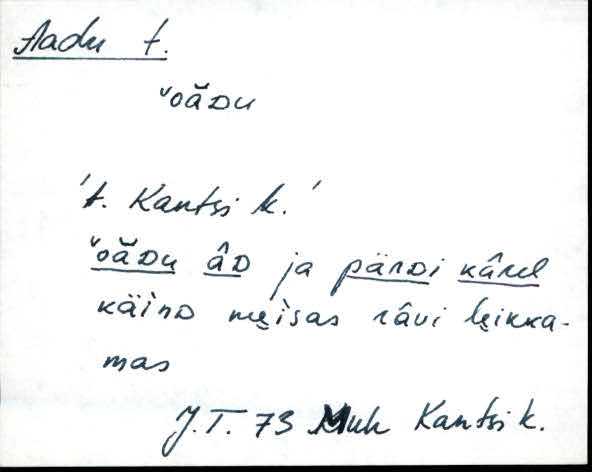 Aadu t.
ˇoăDu
't. Kantsi k.'
ˇoăDu âD ja pärDi kârel
käinD mẹisas râvi lẹikka-
mas
J.T. 73 Muh Kantsi k.